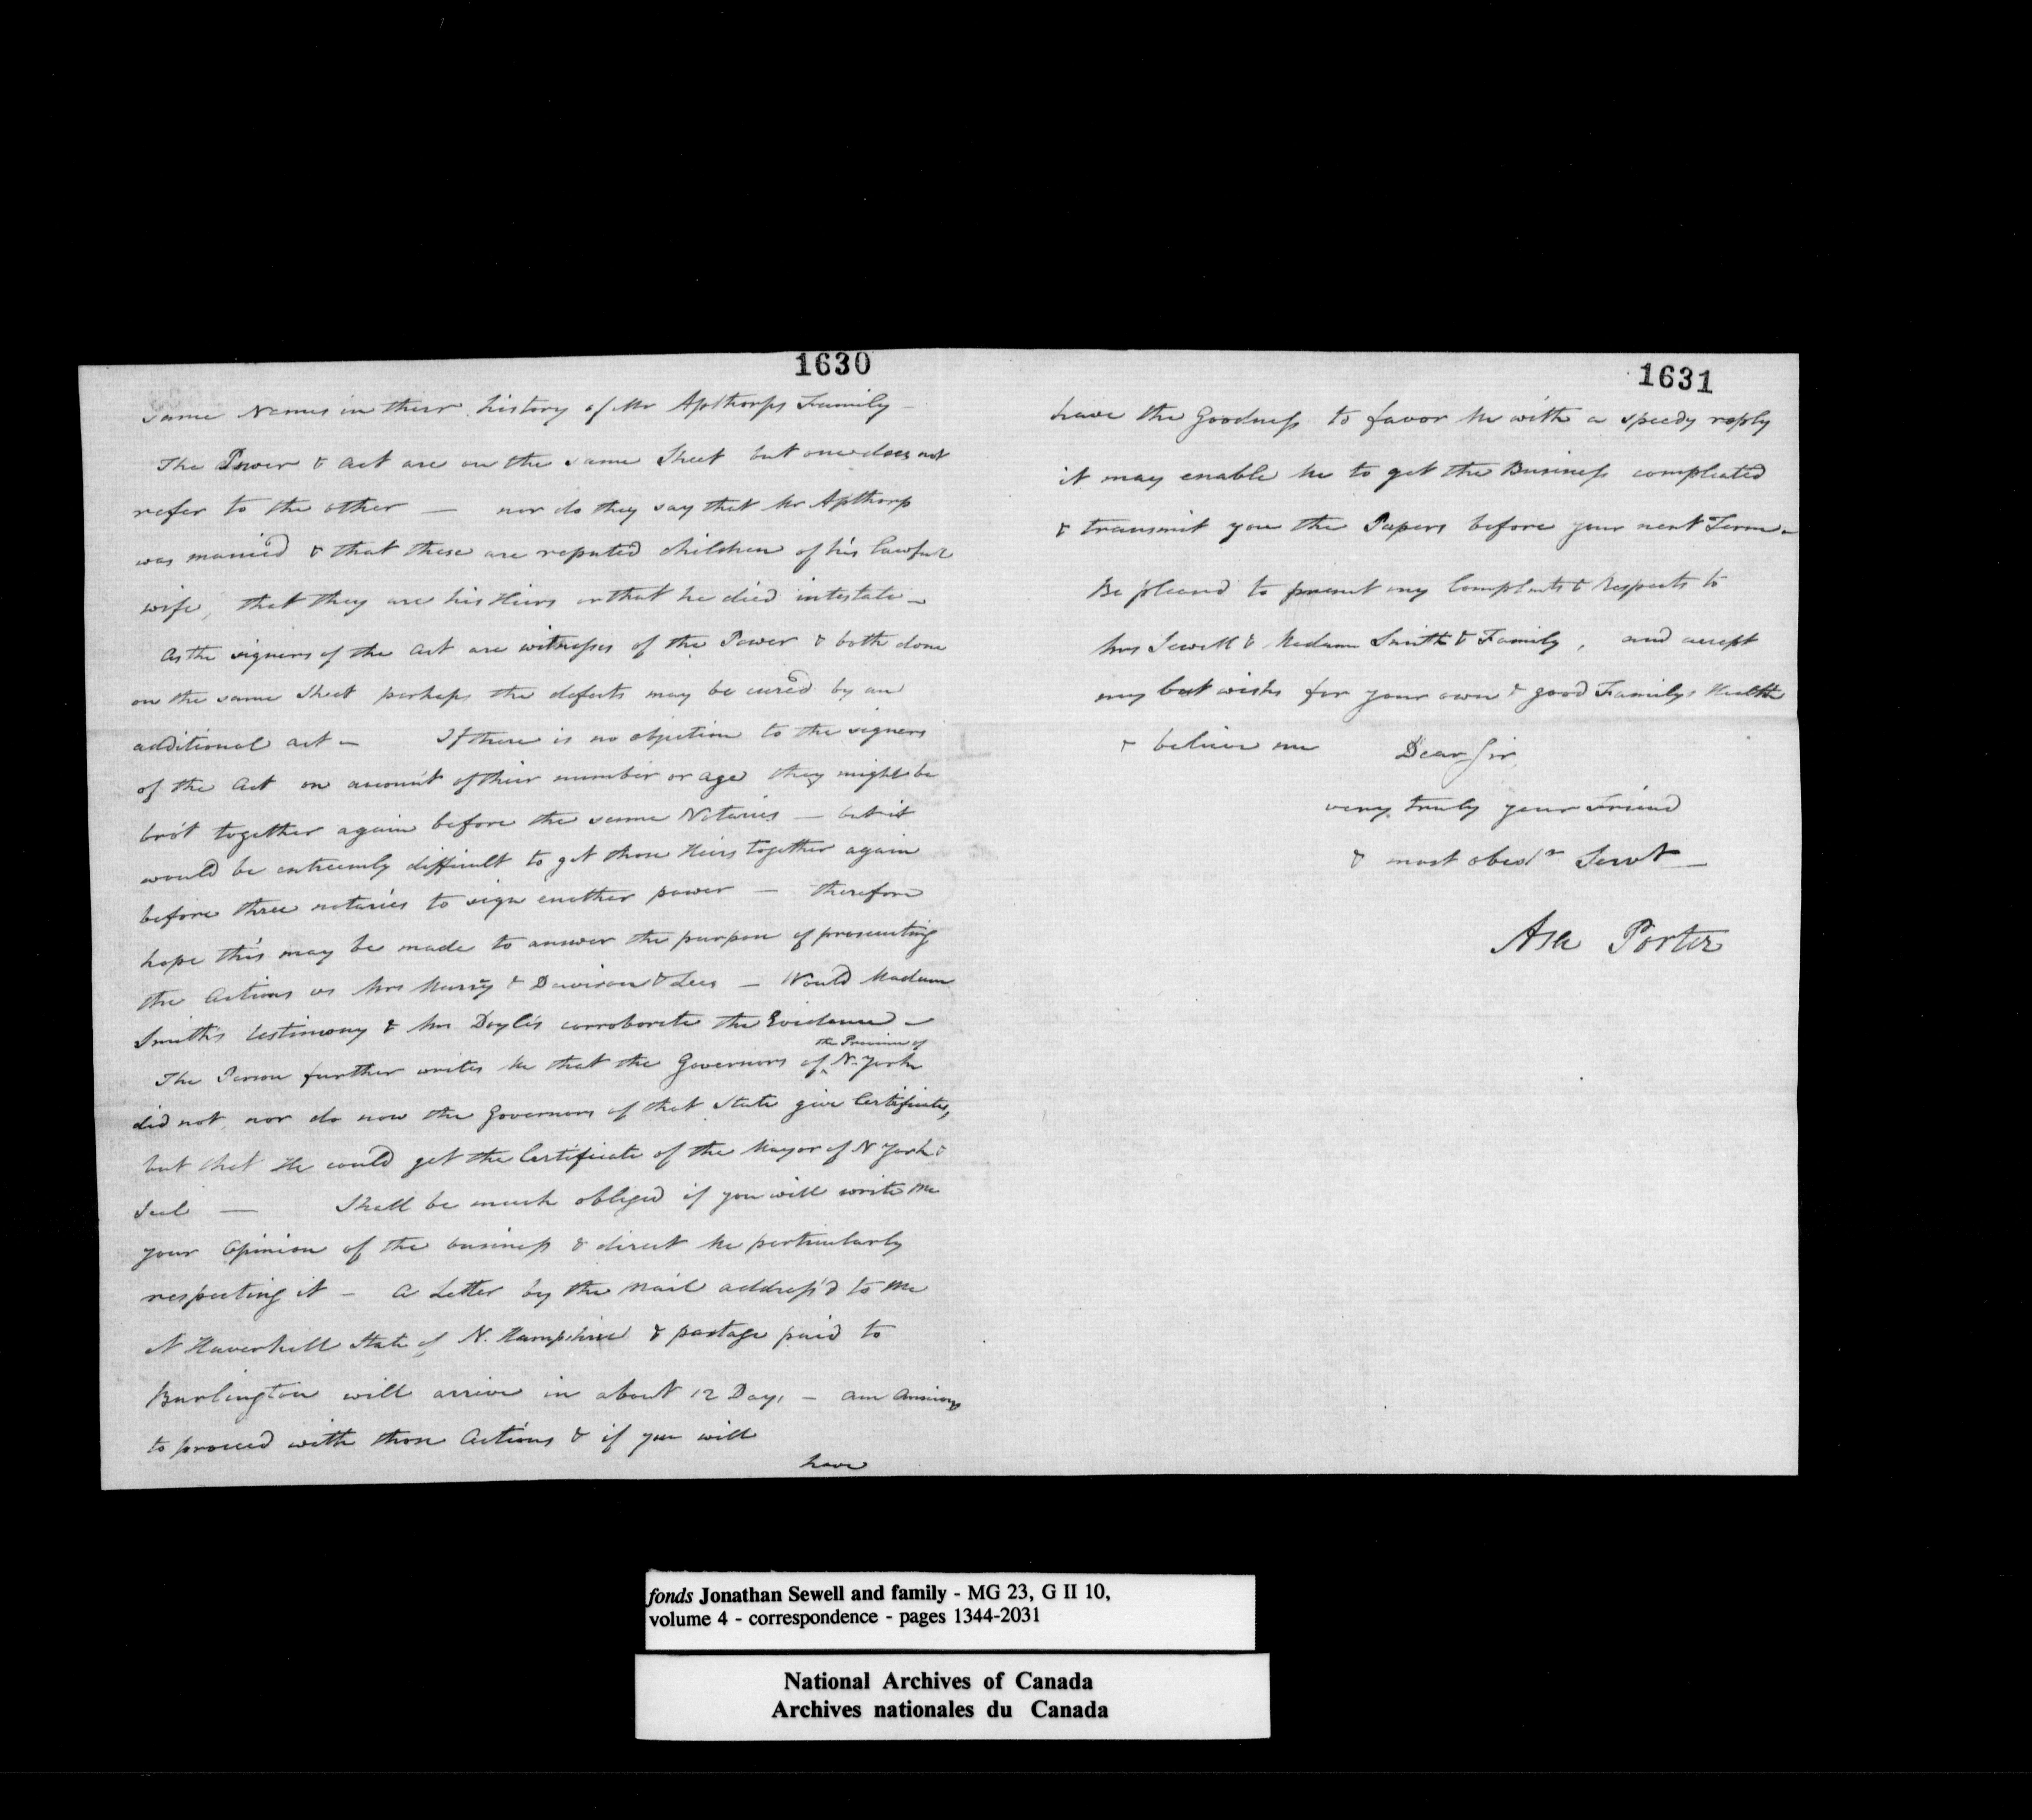 1630
same Names in their history of Mr Apthorps Family —
The Power & Act are on the same Sheet but one does not
refer to the other — nor do they say that Mr Apthorp
was married & that these are reputed children of his lawful
wife, that they are his Heirs or that he died intestate —
As the signers of the Act are witnesses of the Power & both done
on the same Sheet perhaps the defects may be cured by an
additional act — If there is no objection to the signers
of the Act on account of their number or age they might be
bro't together again before the same Notaries — but it
would be extreemly difficult to get those Heirs together again
before three notaries to sign another power — therefore
hope this may be made to answer the purpose of prosecuting
the Actions vs Mrs Murry & Davison & Lees — Would Madam
Smith's testimony & Mrs Doyle's corroborate the Evidence —
the Province of
The Person further writes me that the Governors of N. York
did not nor do now the Governors of that State give Certificates,
but that He could get the Certificate of the Mayor of N York &
Seal — Shall be much obliged if you will write me
your Opinion of the business & direct me particularly
respecting it — A Letter by the Mail address'd to me
At Haverhill State of N. Hampshire & postage paid to
Burlington will arrive in about 12 Days — am Anxious
to proceed with those Actions & if you will
have
1631
have the Goodness to favor me with a speedy reply
it may enable me to get the Business compleated
& transmit you the Papers before your next Term —
Be pleased to present my Complmts & Respects to
Mrs Sewell & Madam Smith & Family, and accept
my best wishes for your own & good Familys Health
& believe me Dear Sir
very truly your Friend
& most obedt Servt —
Asa Porter
fonds Jonathan Sewell and family - MG 23, G II 10,
volume 4 - correspondence - pages 1344-2031
National Archives of Canada
Archives nationales du Canada